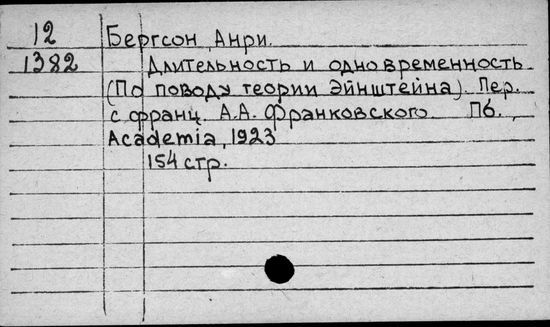 12 Бергсон Анри.
1382 Длительность и одновременность
(По поводу теории Эйнштейна). Пер.
с франц. А.А. Франковского. Пб.,
Academia, 1923
154 стр.